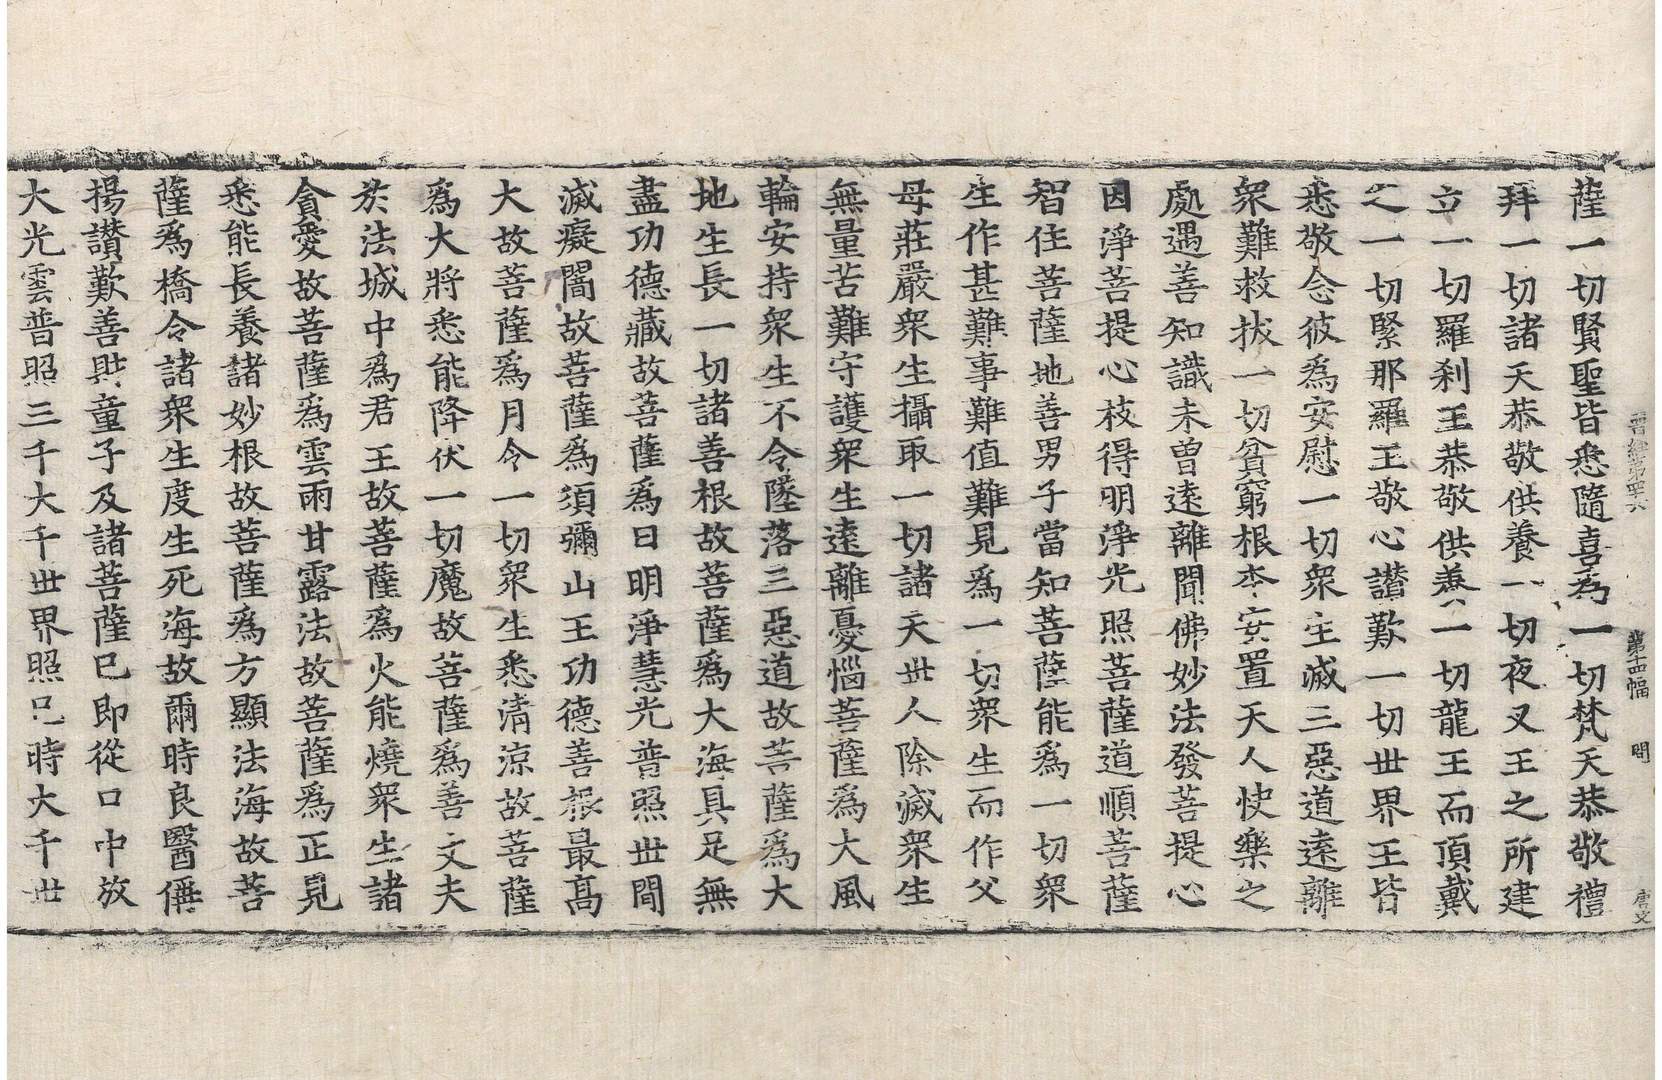 晉經第四十六 第十四幅 問 唐文
薩一切賢聖皆悉隨喜為一切梵天恭敬禮
拜一切諸天恭敬供養一切夜叉王之所建
立一切羅刹王恭敬供養一切龍王而頂戴
之一切緊那羅王敬心讃歎一切世界王皆
悉敬念彼爲安慰一切衆生滅三惡道遠離
衆難救拔一切貧窮根本安置天人快樂之
處遇善知識未曽遠離聞佛妙法發菩提心
因淨菩提心枝得明淨光照菩薩道順菩薩
智住菩薩地善男子當知菩薩能爲一切衆
生作甚難事難值難見爲一切衆生而作父
母莊嚴衆生攝取一切諸天世人除滅衆生
無量苦難守護衆生遠離憂惱菩薩爲大風
輪安持衆生不令墜落三惡道故菩薩爲大
地生長一切諸善根故菩薩爲大海具足無
盡功德藏故菩薩爲日明淨慧光普照世間
滅癡闇故菩薩爲須彌山王功德善根最髙
大故菩薩爲月令一切衆生悉清涼故菩薩
爲大將悉能降伏一切魔故菩薩爲善丈夫
於法城中爲君王故菩薩爲火能燒衆生諸
貪愛故菩薩爲雲雨甘露法故菩薩爲正見
悉能長養諸妙根故菩薩爲方顯法海故菩
薩爲橋令諸衆生度生死海故爾時良醫僊
揚讃歎善財童子及諸菩薩已即從口中放
大光雲普照三千大千世界照已時大千世